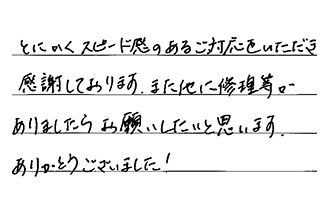 とにかくスピード感のあるご対応をいただき
感謝しております。また他に修理等が
ありましたらお願いしたいと思います。
ありがとうございました!